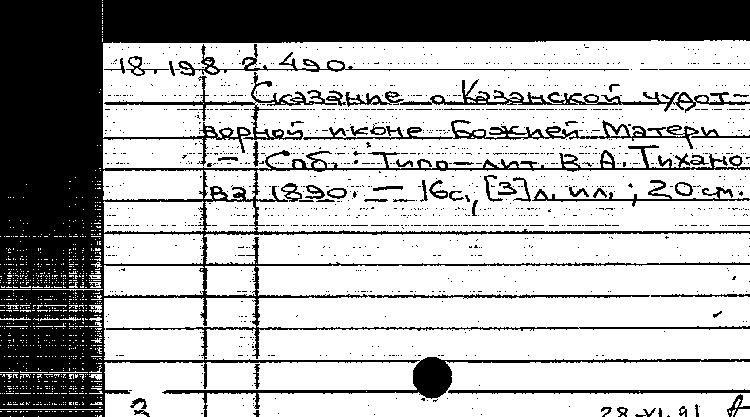 18.198.2.490.
Сказание о Казанской чудот-
ворной иконе Божией Матери
. — Спб. : Типо-лит. В. А. Тихано
ва 1890. — 16с., [3] л. ил. ; 20 см.
3
28-VI.91